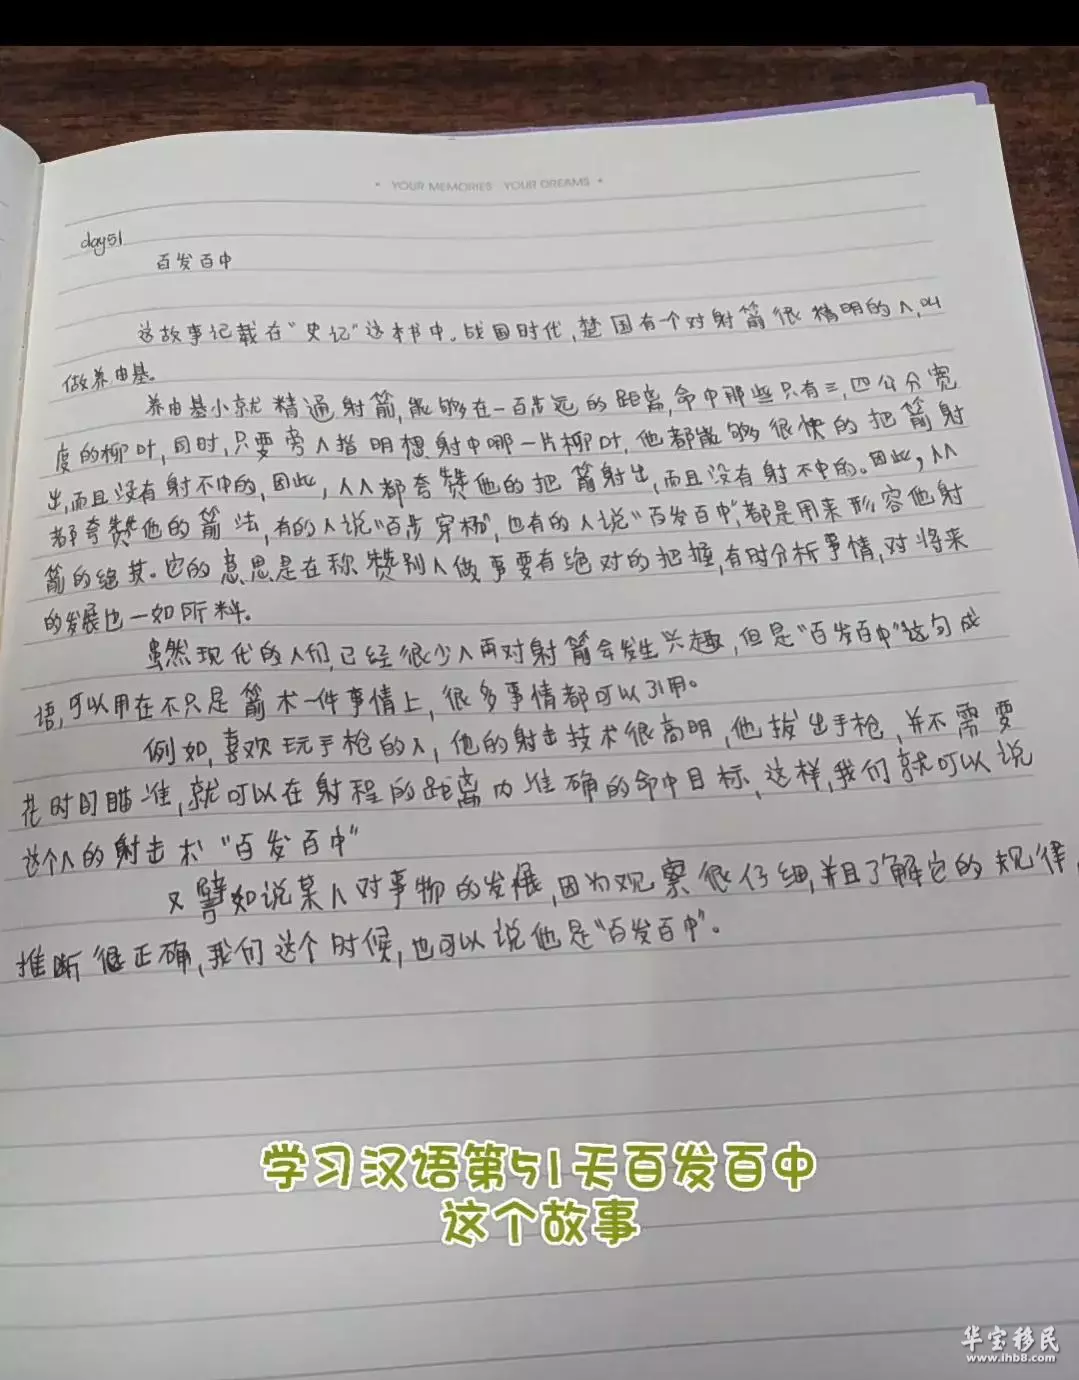 • YOUR MEMORIES YOUR DREAMS •
day51
百发百中
这故事记载在“史记”这本书中。战国时代,楚国有一个对射箭很精明的人,叫
做养由基。
养由基小就精通射箭,能够在一百步远的距离,命中那些只有三、四公分宽
度的柳叶,同时,只要旁人指明想射中哪一片柳叶,他都能够很快的把箭射
出,而且没有射不中的,因此,人人都夸赞他的把箭射出,而且没有射不中的。因此,人人
都夸赞他的箭法,有的人说“百步穿杨”,也有的人说“百发百中”,都是用来形容他射
箭的绝技。它的意思是在称赞别人做事要有绝对的把握,有时分析事情,对将来
的发展也一如所料。
虽然现代的人们,已经很少人再对射箭会发生兴趣,但是“百发百中”这句成
语,可以用在不只是箭术一件事情上,很多事情都可以引用。
例如,喜欢玩手枪的人,他的射击技术很高明,他拔出手枪,并不需要
花时间瞄准,就可以在射程的距离内准确的命中目标,这样,我们就可以说
这个人的射击术“百发百中”
又譬如说某人对事物的发展,因为观察很仔细,并且了解它的规律,
推断很正确,我们这个时候,也可以说他是“百发百中”。
学习汉语第51天百发百中
这个故事
华宝移民
www.ihb8.com